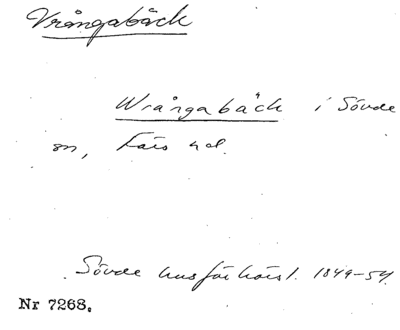 Vrångabäck
Wrångabäck i Sövde
sn, Färs hd.
Sövde husförhörsl. 1849-54.
Nr 7268.